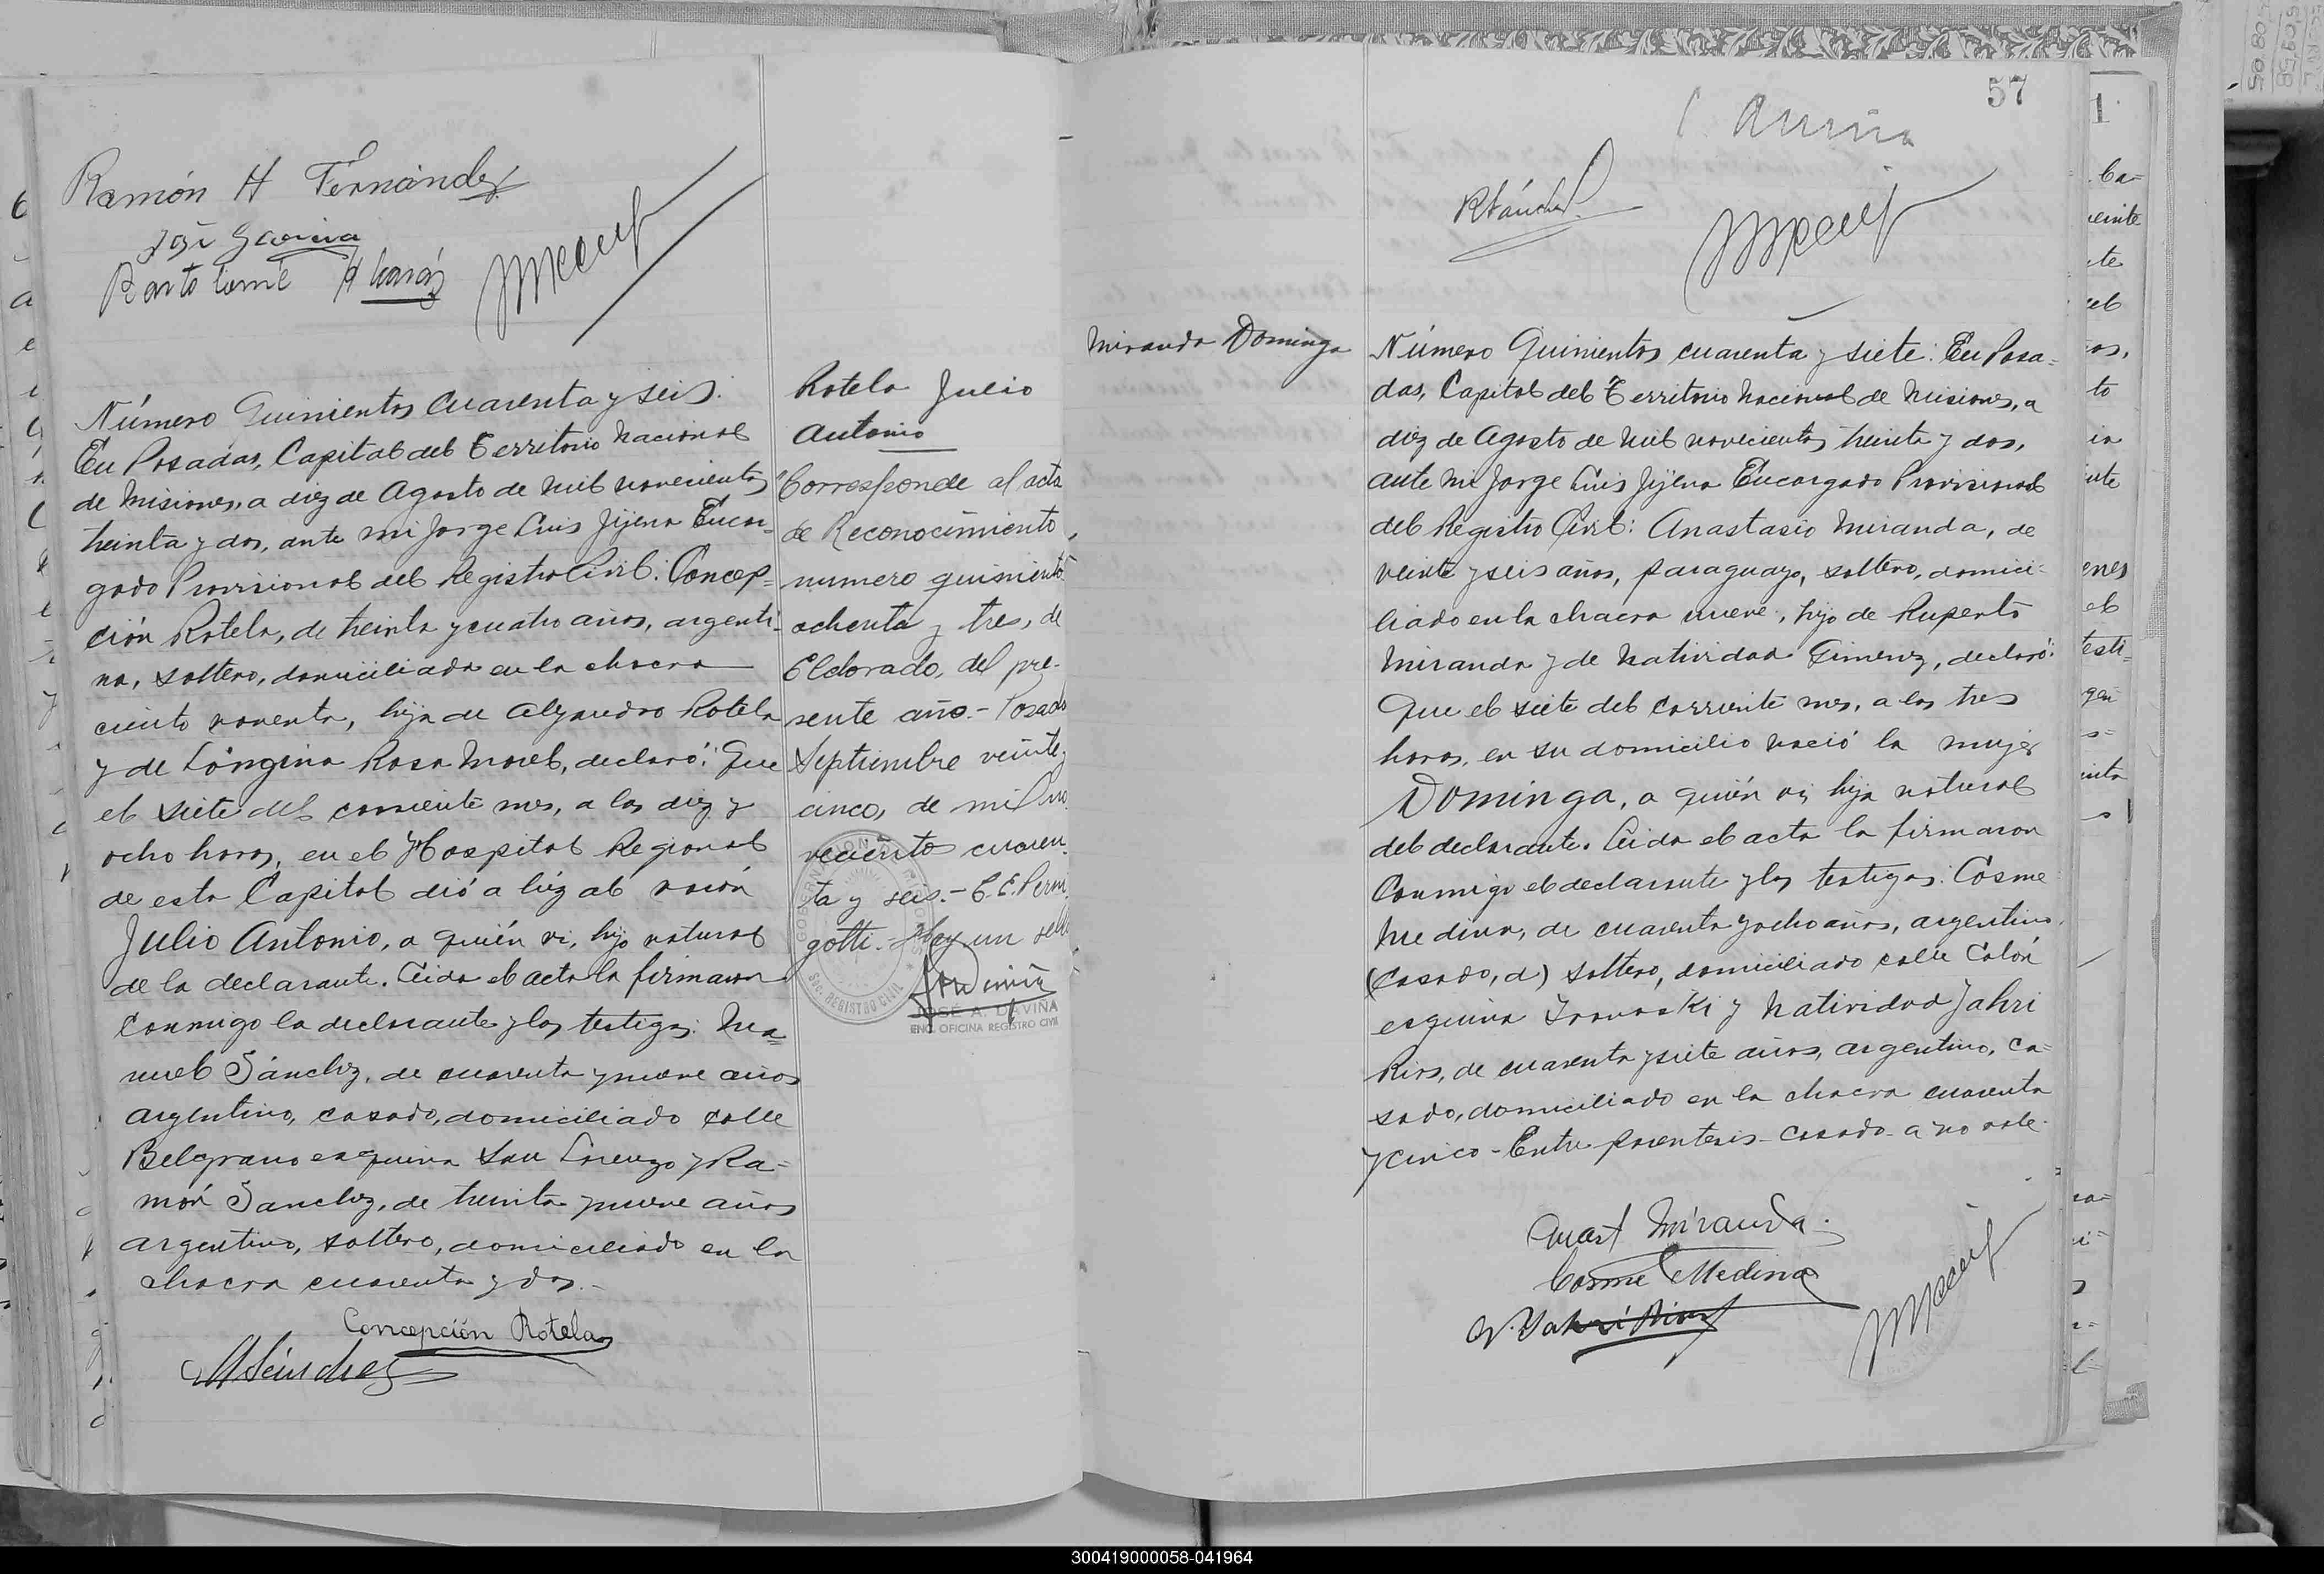 Ramón H Fernández
José Garcia
Bartolomé
Número Quinientos cuarenta y seis:
En Posadas, Capital del Territorio Nacional
de Misiones, a diez de Agosto de mil novecientos
treinta y dos, ante mi Jorge Luis Jijena Encar-
gado Provisional del Registro Civil: Concep=
ción Rotela, de treinta y cuatro años, argenti-
na, soltera, domiciliada en la chacra
ciento noventa, hija de Alejandro Rotela
y de Longina Rosa Morel, declaró: Que
el siete del corriente mes, a las diez y
ocho horas, en el Hospital Regional
de esta Capital dió a lúz al varón
Julio Antonio, a quién vi, hijo natural
de la declarante. Leida el acta la firmaron
conmigo la declarante y los testigos: Ma=
nuel Sánchez, de cuarenta y nueve años
argentino, casado, domiciliado calle
Belgrano esquina San Lorenzo y Ra=
món Sanchez, de treinta y nueve años
argentino, soltero, domiciliado en la
chacra cuarenta y dos.-
Concepción Rotela
MSánchez
Rotela Julio
Antonio
Corresponde al acta
de Reconocimiento
numero quiniento
ochenta y tres, de
Eldorado, del pre-
sente año.- Posada
Septiembre veinte
cinco, de mil no
vecientos cuaren
ta y seis.- E.E. Perni
gotti.- Hay un sello
REGISTRO CIVIL
JOSÉ A. DAVIÑA
ENC. OFICINA REGISTRO CIVIL
57
RSánchez
Miranda Dominga
Número Quinientos cuarenta y siete: En Posa=
das, Capital del Territorio Nacional de Misiones, a
diez de Agosto de mil novecientos treinta y dos,
ante mi Jorge Luis Jijena Encargado Provisional
del Registro Civil: Anastasio Miranda, de
veinte y seis años, paraguayo, soltero, domici-
liado en la chacra nueve, hijo de Ruperto
Miranda y de Natividad Gimenez, declaró:
Que el siete del corriente mes, a las tres
horas, en su domicilio nació la mujer
Dominga, a quién vi, hija natural
del declarante. Leida el acta la firmaron
conmigo el declarante y los testigos: Cosme
Medina, de cuarenta y ocho años, argentino,
(casado, d) soltero, domiciliado calle Colón
esquina y Natividad Jahri
Rios, de cuarenta y siete años, argentino, ca=
sado, domiciliado en la chacra cuarenta
y cinco - Entre parentesis - casado - a no vale.
Anast Miranda.
Cosme Medina
N. Jahri Rios
300419000058-041964